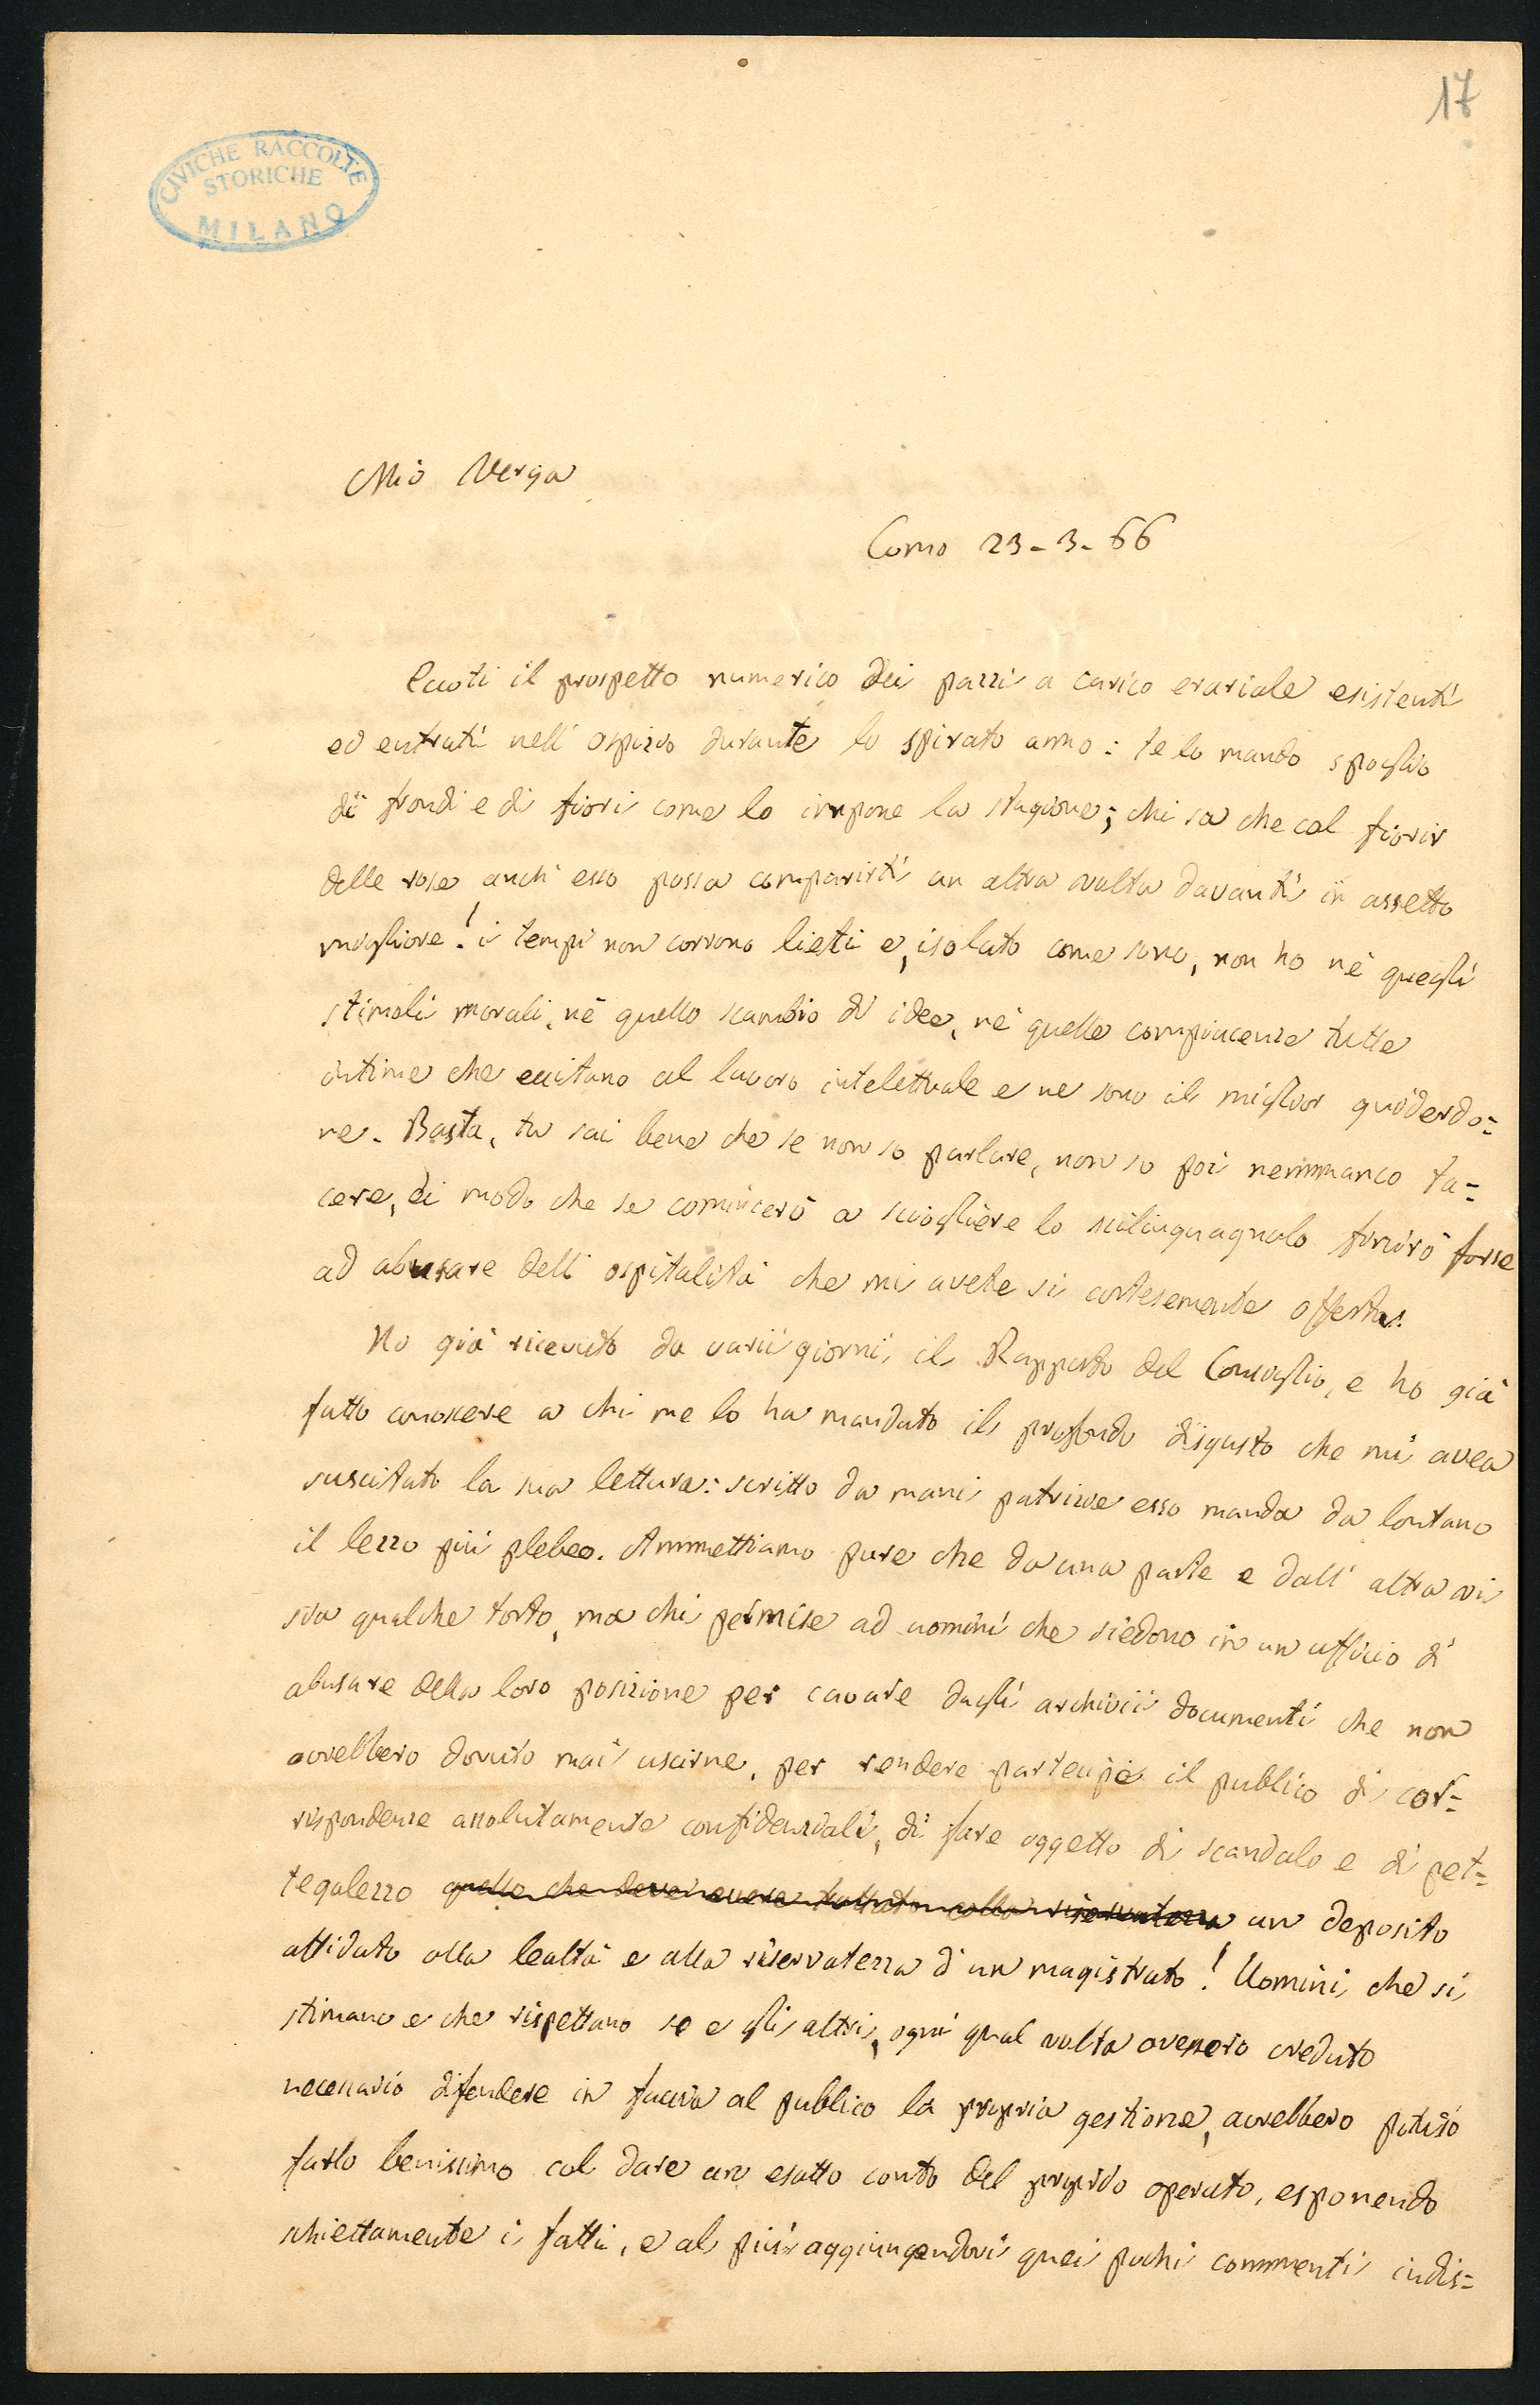 17
CIVICHE RACCOLTE
STORICHE
MILANO
Mio Verga
Como 23-3-66
Eccoti il prospetto numerico dei pazzi a carico erariale esistenti
ed entrati nell'ospizio durante lo spirato anno: te lo mando spoglio
di frondi e di fiori come lo impone la stagione; chi sa che col fiorir
delle rose anch'esso possa comparirti un altra volta davanti in assetto
migliore! i tempi non corrono lieti e, isolato come sono, non ho nè quegli
stimoli morali, nè quello scambio di idee, nè quelle compiacenze tutte
intime che eccitano al lavoro intelettuale e ne sono il miglior guiderdo=
ne. Basta, tu sai bene che se non so parlare, non so poi nemmanco ta=
cere, di modo che se comincerò a sciogliere lo scilinguagnolo finirò forse
ad abusare dell'ospitalità che mi avete sì cortesemente offerta.
Ho già ricevuto da varii giorni il Rapporto del Consiglio, e ho già
fatto conoscere a chi me lo ha mandato il profondo disgusto che mi avea
suscitato la sua lettura: scritto da mani patrizie esso manda da lontano
il lezzo più plebeo. Ammettiamo pure che da una parte e dall'altra vi
sia qualche torto, ma chi permise ad uomini che siedono in un ufficio di
abusare della loro posizione per cavare dagli archivii documenti che non
avrebbero dovuto mai uscirne, per rendere partecipe il publico di cor=
rispondenze assolutamente confidenziali, di fare oggetto di scandalo e di pet=
tegolezzo quello che deve essere trattato colla riservatezza un deposito
affidato alla lealtà e alla riservatezza d'un magistrato! Uomini che si
stimano e che rispettano se e gli altri, ogni qual volta avessero creduto
necessario difendere in faccia al publico la propria gestione, avrebbero potuto
farlo benissimo col dare un esatto conto del proprio operato, esponendo
schiettamente i fatti, e al più aggiungendovi quei pochi commenti indis=